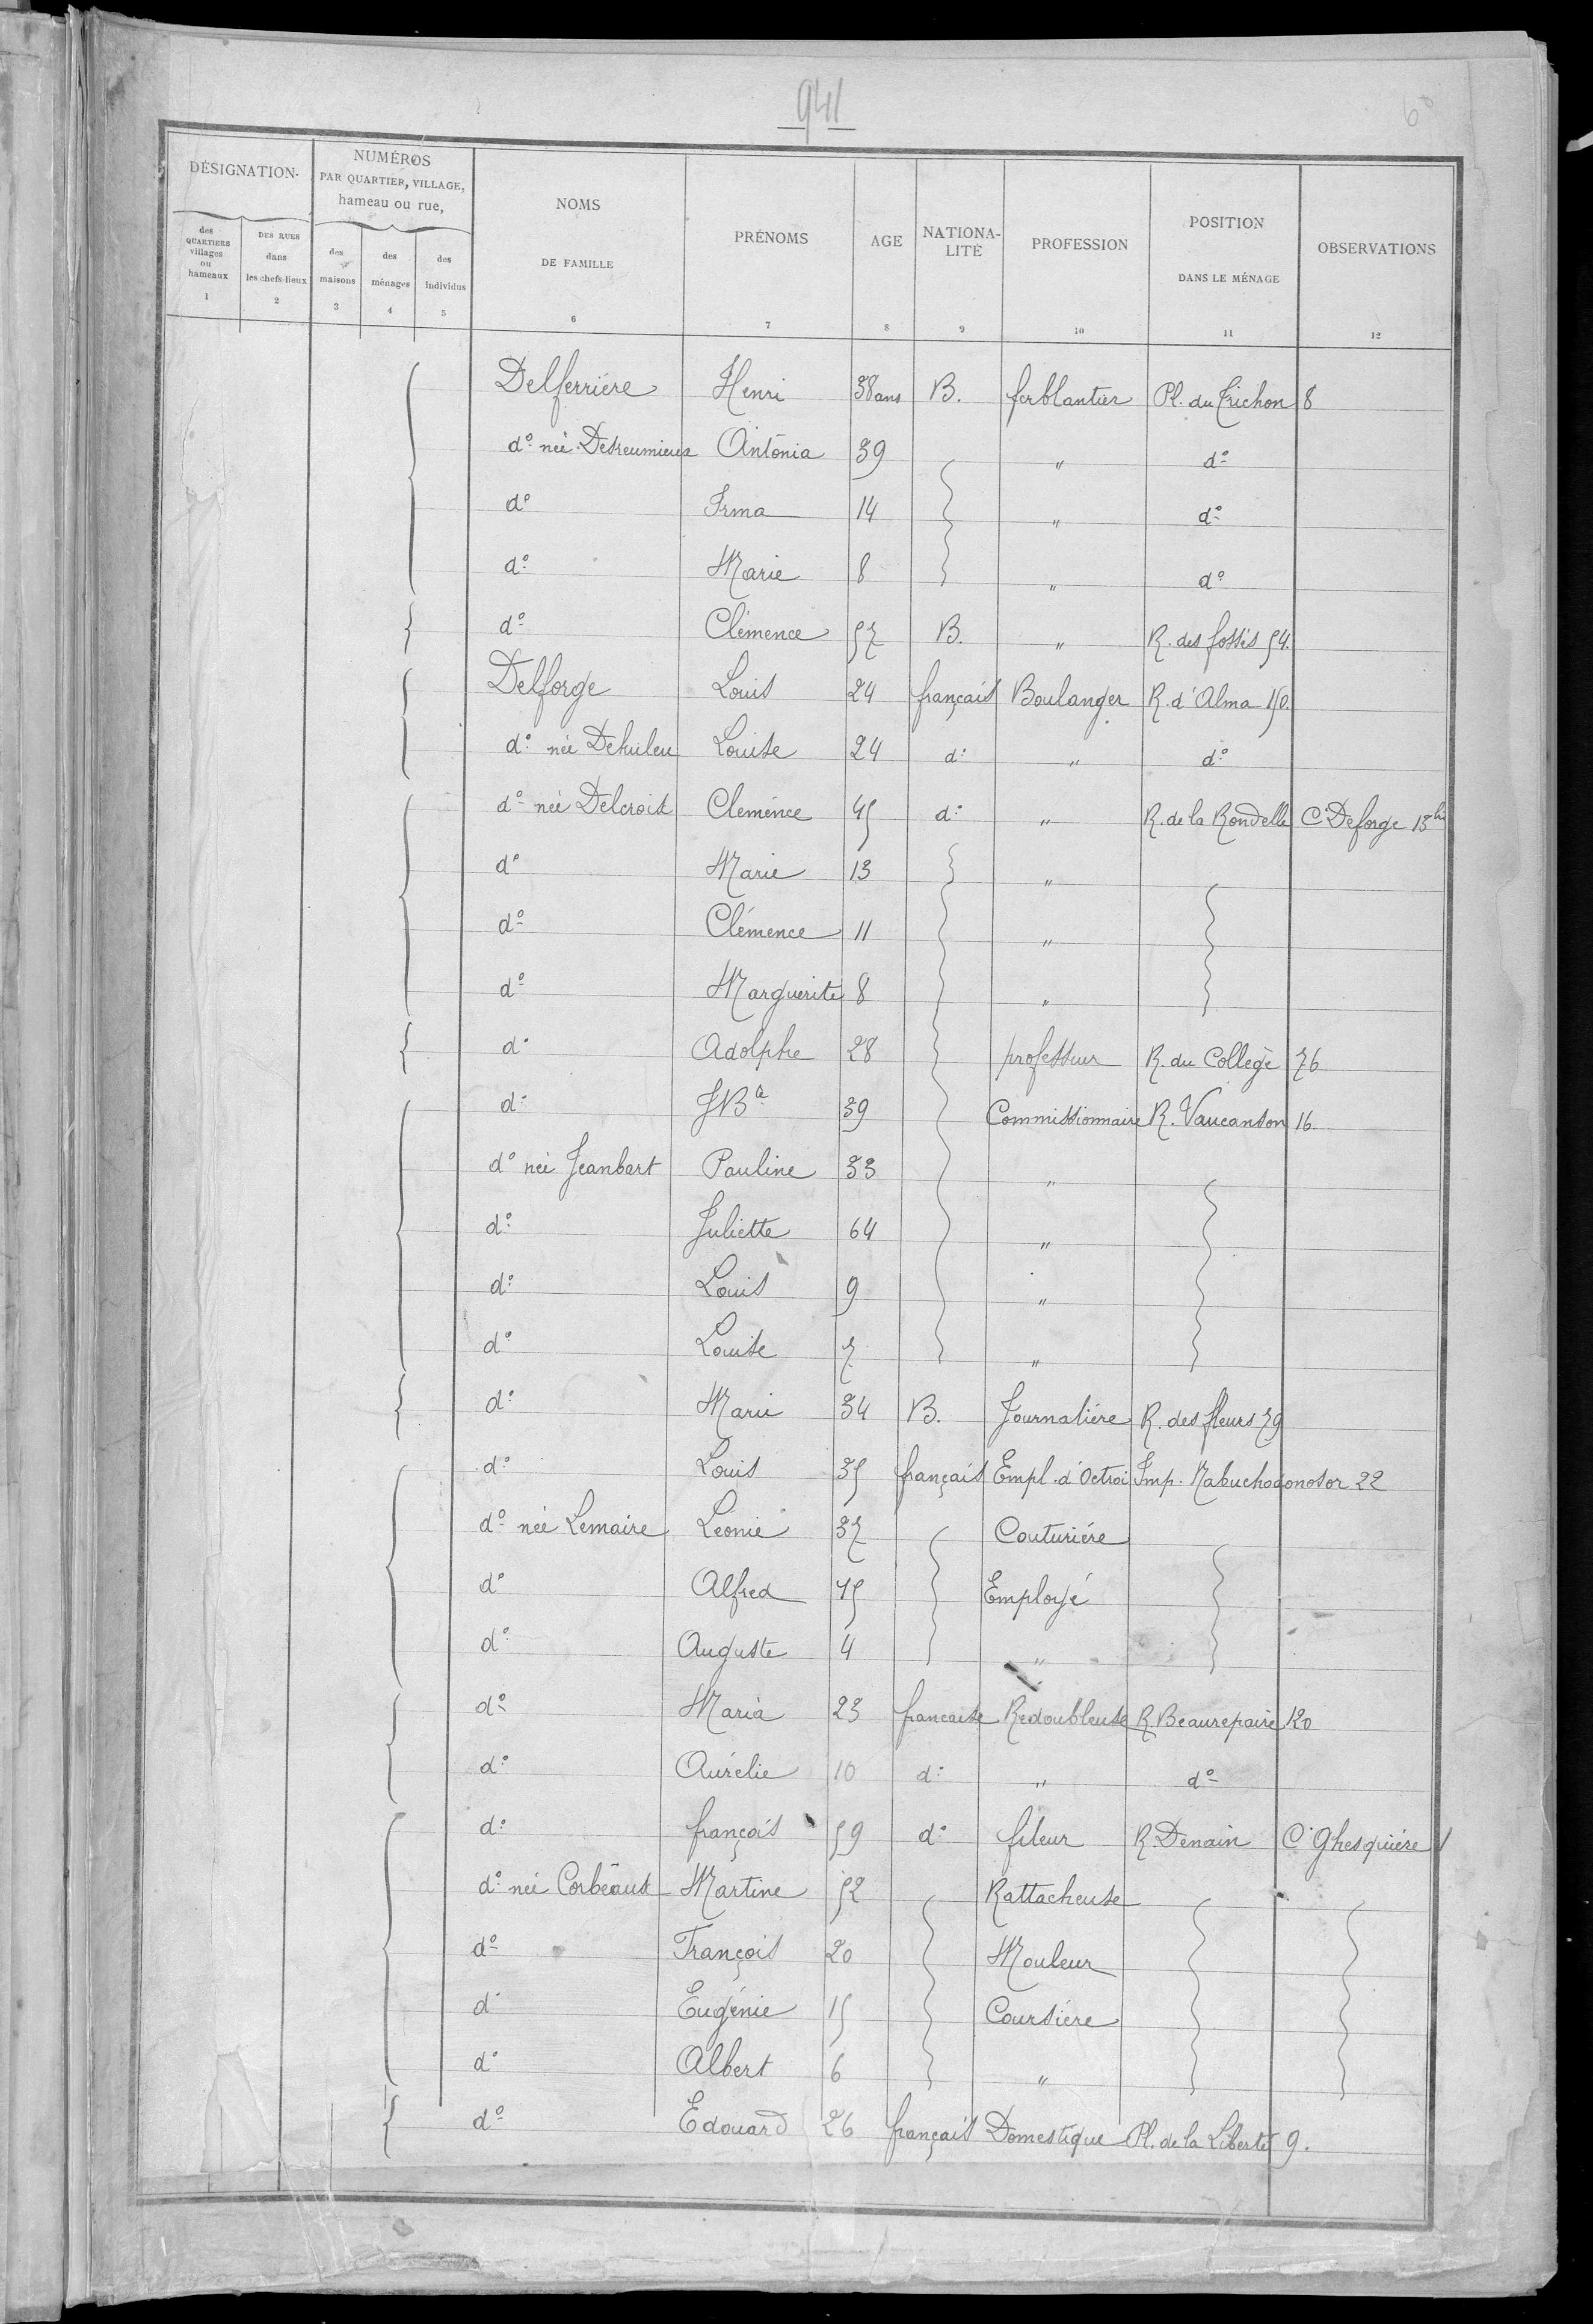 941
60
DÉSIGNATION
NUMÉROS PAR QUARTIER, VILLAGE, hameau ou rue,
NOMS DE FAMILLE
PRÉNOMS
AGE
NATIONALITÉ
PROFESSION
POSITION DANS LE MÉNAGE
OBSERVATIONS
des QUARTIERS villages ou hameaux
DES RUES dans les chefs-lieux
des maisons
des ménages
des individus
1 2 3 4 5 6 7 8 9 10 11 12
Delferriére Henri 38 ans B. ferblantier Pl. du Trichon 8
d° née Desreumieux Antonia 39 " d°
d° Irma 14 " d°
d° Marie 8 " d°
d° Clémence 57 B. " R. des fossés 54.
Delforge Louis 24 français Boulanger R. d'Alma 150.
d° née Dehuleu Louise 24 d° " d°
d° née Delcroix Cleménce 45 d° " R. de la Rondelle C. Deforge 13
d° Marie 13 "
d° Clémence 11 "
d° Marguerite 8 "
d° Adolphe 28 professeur R. du Collège 76
d° JBte 39 Commissionnaire R. Vaucanson 16
d° née Jeanbart Pauline 33 "
d° Juliette 64 "
d° Louis 9 "
d° Louise 7 "
d° Marie 34 B. Journaliére R. des fleurs 79
d° Louis 35 français Empl. d'Octroi Imp. Nabuchodonosor 22
d° née Lemaire Léonie 37 Couturiére
d° Alfred 15 Employé
d° Auguste 4 "
d° Maria 23 francaise Redoubleuse R. Beaurepaire 120
d° Aurélie 10 d° " d°
d° françois 59 d° fileur R. Denain C. Ghesquiére 1
d° née Corbeaux Martine 52 Rattacheuse
d° François 20 Mouleur
d° Eugénie 15 Coursière
d° Albert 6 "
d° Edouard 26 français Domestique Pl. de la Liberté 9.